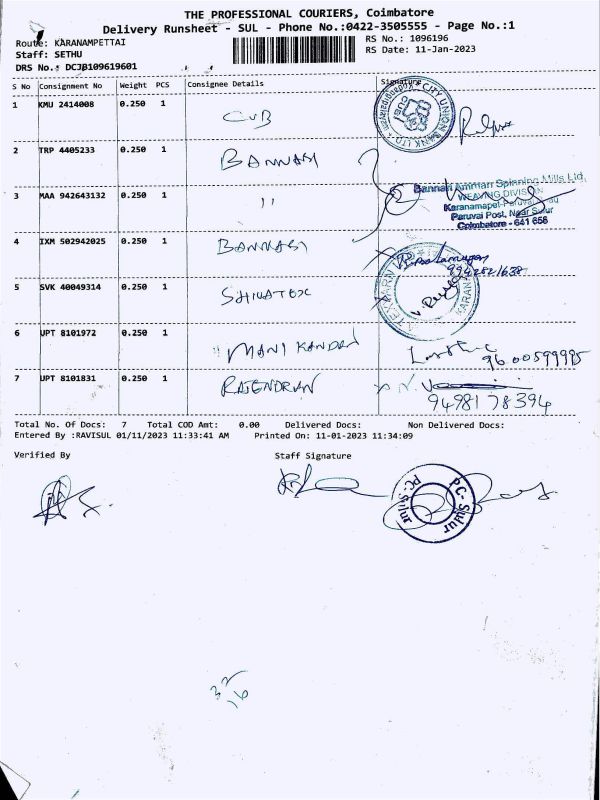 THE PROFESSIONAL COURIERS, Coimbatore
Delivery Runsheet - SUL - Phone No.:0422-3505555 - Page No.:1
Route: KARANAMPETTAI
RS No.: 1096196
Staff: SETHU
RS Date: 11-Jan-2023
DRS No.: DCJB109619601
S No Consignment No Weight PCS Consignee Details Signature
1 KMU 2414008 0.250 1 CUB
CITY UNION BANK LTD
2 TRP 4405233 0.250 1 BANNARI
3 MAA 942643132 0.250 1 "
Bannari Amman Spinning Mills Ltd,
WEAVING DIVISION
Karanamapet
Paruvai Post, Near Sulur
Coimbatore - 641 658
4 IXM 502942025 0.250 1 BANNARI
5 SVK 40049314 0.250 1 SHIVATEX
6 UPT 8101972 0.250 1 MANI KANDAN
96 00599995
7 UPT 8101831 0.250 1 RAJENDRAN
9498178394
Total No. Of Docs: 7 Total COD Amt: 0.00 Delivered Docs: Non Delivered Docs:
Entered By :RAVISUL 01/11/2023 11:33:41 AM Printed On: 11-01-2023 11:34:09
Verified By Staff Signature
PC-Sulur PC-Sulur